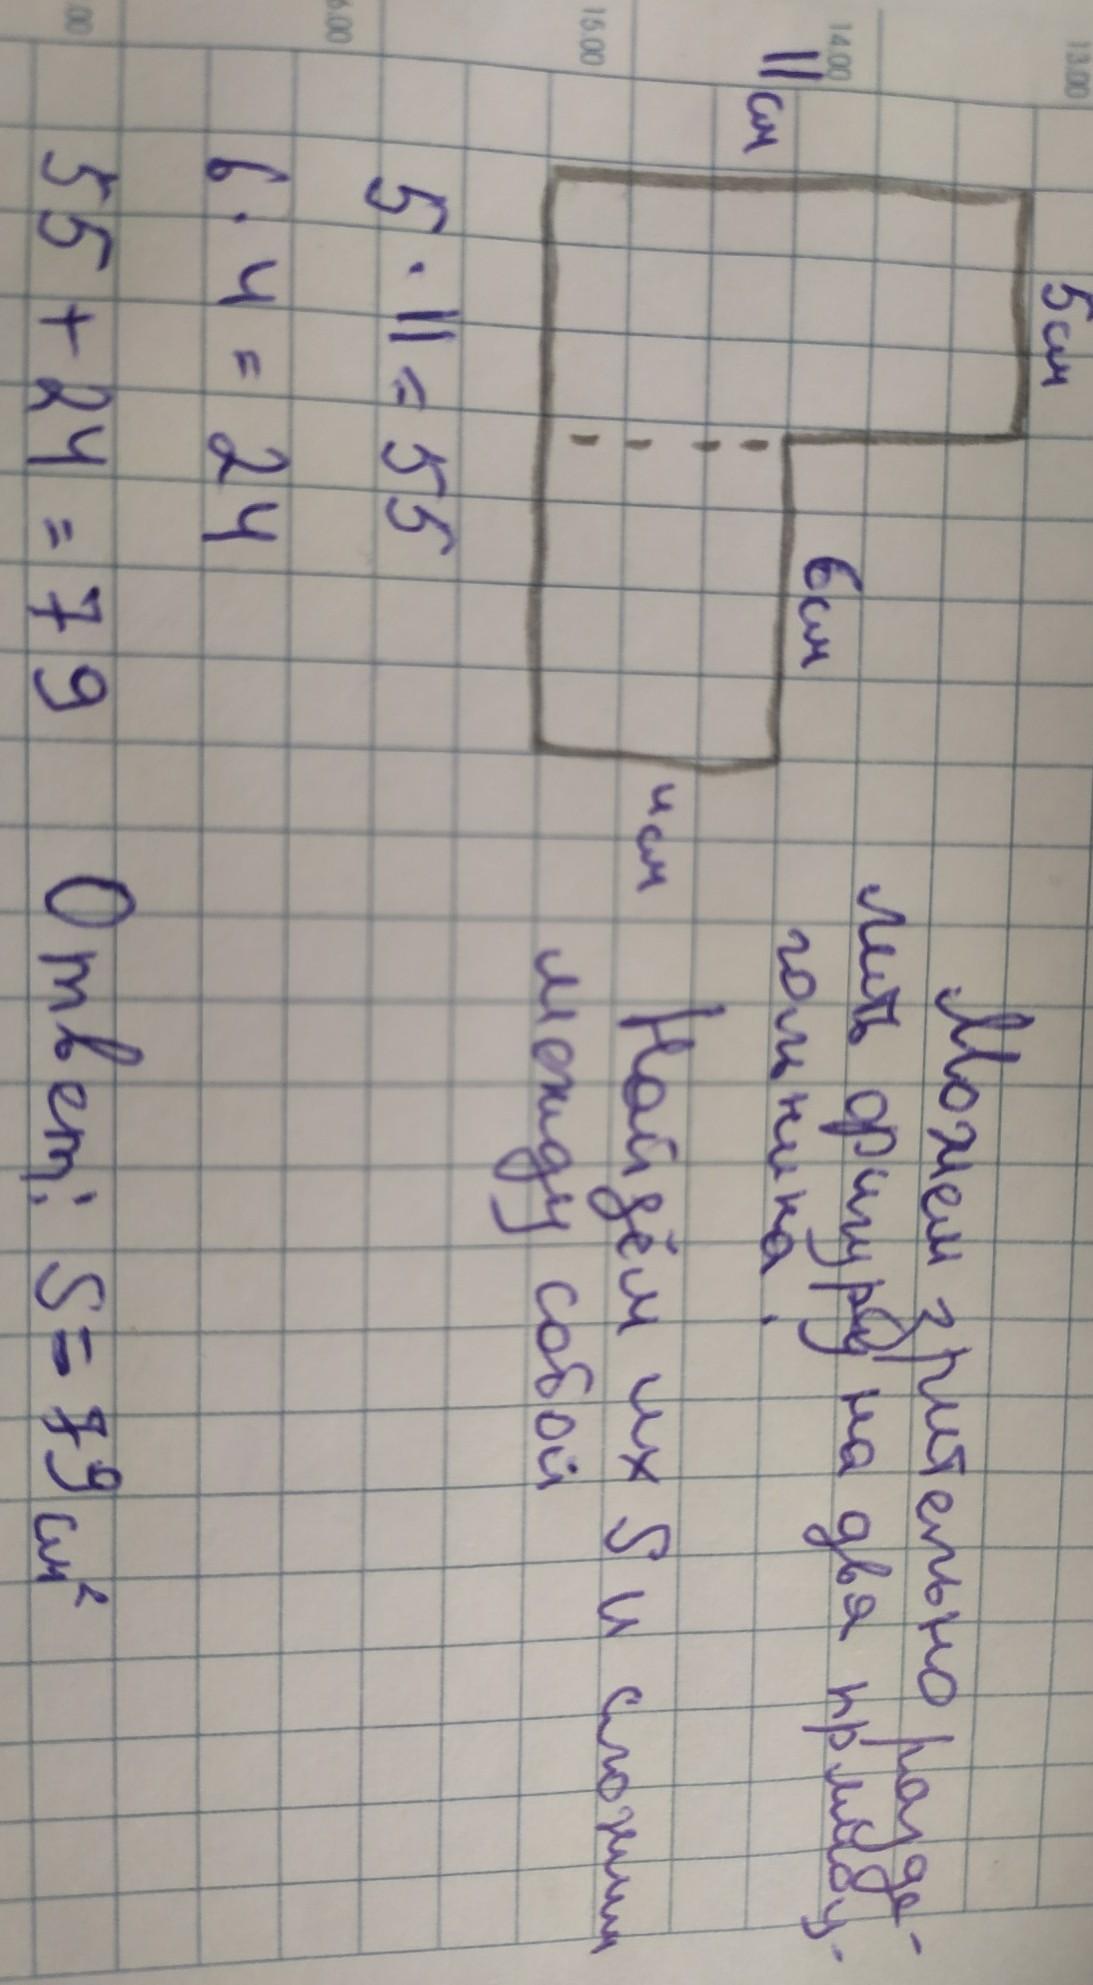 13.00
14.00
15.00
6.00
.00
5 см
11 см
6 см
4 см
Можем зрительно разде-
лить фигуру на два прямоу-
гольника.
Найдём их S и сложим
между собой
5 · 11 = 55
6 · 4 = 24
55 + 24 = 79
Ответ: S = 79 см²